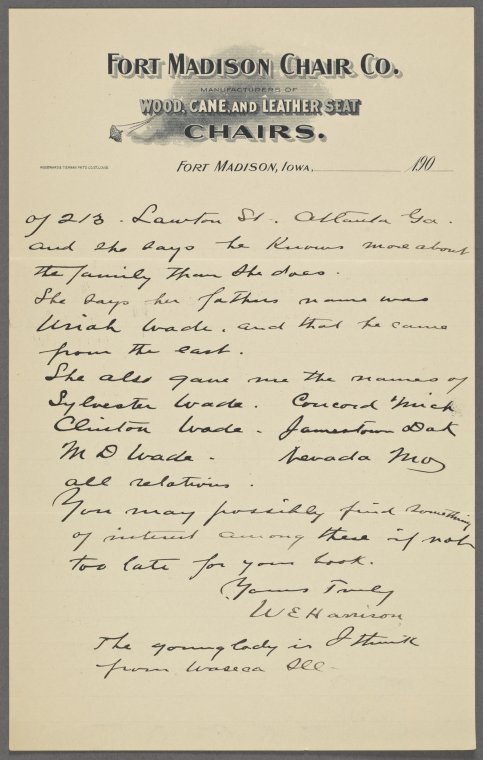 FORT MADISON CHAIR CO.
MANUFACTURERS OF
WOOD, CANE, AND LEATHER SEAT
CHAIRS.
FORT MADISON, IOWA, 190
of 213. Lawton St. Atlanta Ga.
and she says he knows more about
the family than she does.
She says her fathers name was
Uriah Wade. and that he came
from the east.
She also gave me the names of
Sylvester Wade. Concord Mich
Clinton Wade. Jamestown Dak
M D Wade. Nevada Mo
all relations.
You may possibly find something
of interest among these if not
too late for your book.
Yours Truly
W E Harrison
The young lady is I think
from Waseca Ill